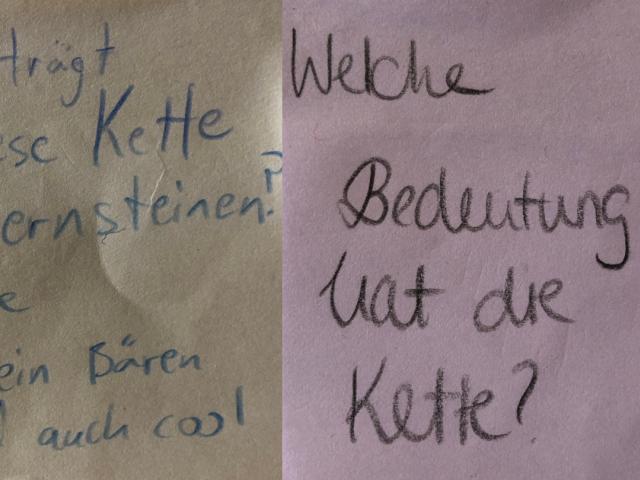 trägt
ese Kette
ernsteinen?
e
ein Bären
auch cool
Welche
Bedeutung
hat die
Kette?